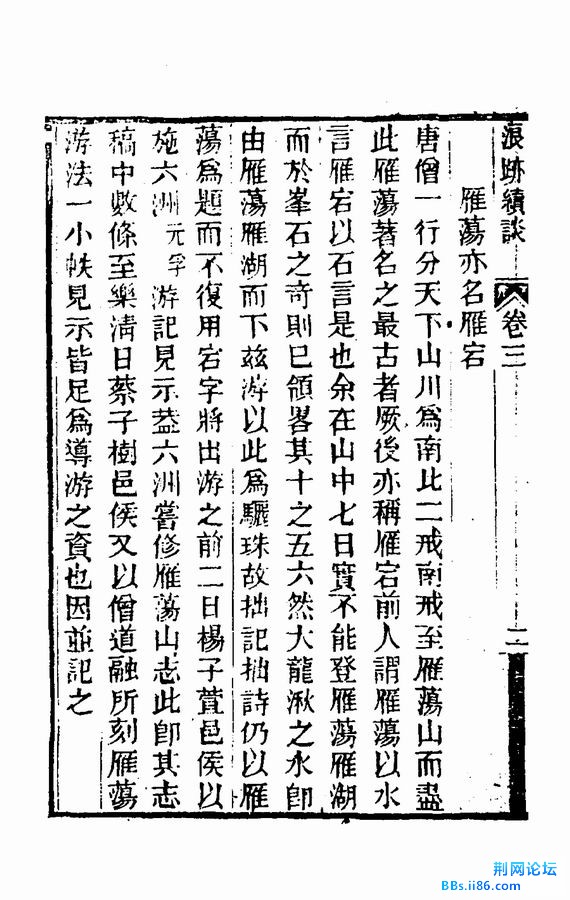 浪跡續談 卷三 二
雁蕩亦名雁宕
唐僧一行分天下山川爲南北二戒南戒至雁蕩山而盡
此雁蕩著名之最古者厥後亦稱雁宕前人謂雁蕩以水
言雁宕以石言是也余在山中七日實不能登雁蕩雁湖
而於峯石之奇則已領畧其十之五六然大龍湫之水卽
由雁蕩雁湖而下茲游以此爲驪珠故拙記拙詩仍以雁
蕩爲題而不復用宕字將出游之前二日楊子萱邑侯以
施六洲元孚游記見示葢六洲嘗修雁蕩山志此卽其志
稿中數條至樂淸日蔡子樹邑侯又以僧道融所刻雁蕩
游法一小帙見示皆足爲導游之資也因並記之
荆网论坛
BBs.ii86.com